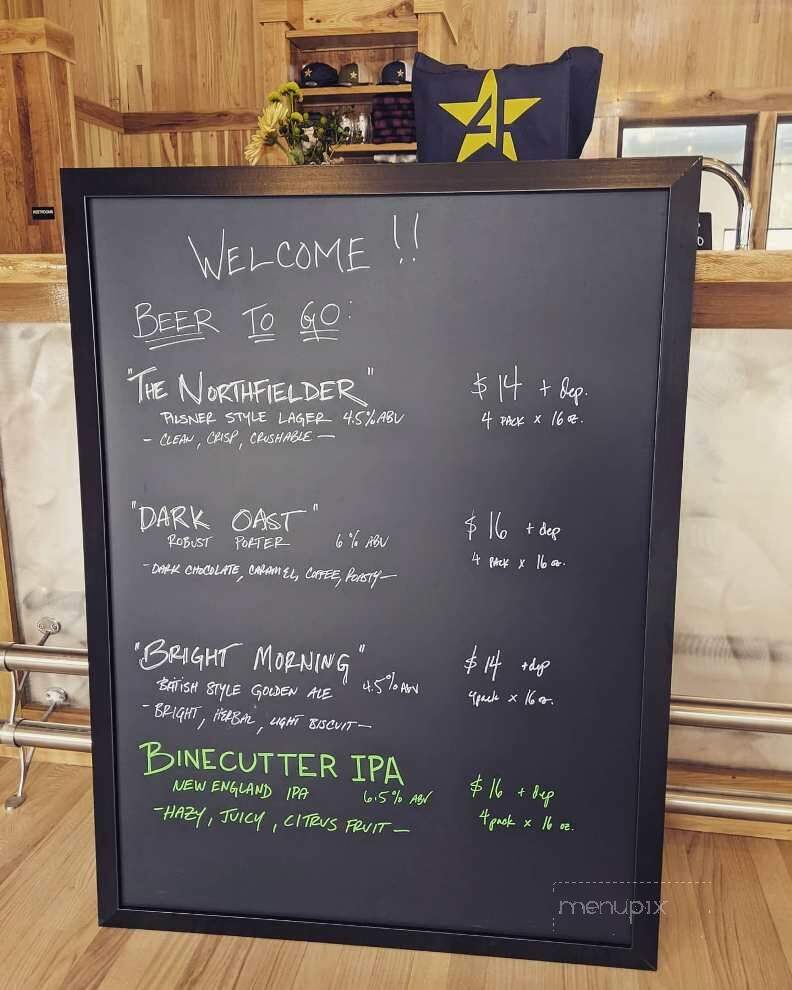 RESTROOMS
WELCOME !!
BEER TO GO:
"THE NORTHFIELDER" $14 + dep.
PILSNER STYLE LAGER 4.5% ABV 4 PACK x 16 oz.
- CLEAN, CRISP, CRUSHABLE -
"DARK OAST" $16 + dep
ROBUST PORTER 6% ABV 4 PACK x 16 oz.
- DARK CHOCOLATE, CARAMEL, COFFEE, ROASTY -
"BRIGHT MORNING" $14 + dep
BRITISH STYLE GOLDEN ALE 4.5% ABV 4 pack x 16 oz.
- BRIGHT, HERBAL, LIGHT BISCUIT -
BINECUTTER IPA
NEW ENGLAND IPA 6.5% ABV $16 + dep
- HAZY, JUICY, CITRUS FRUIT - 4 pack x 16 oz.
menupix